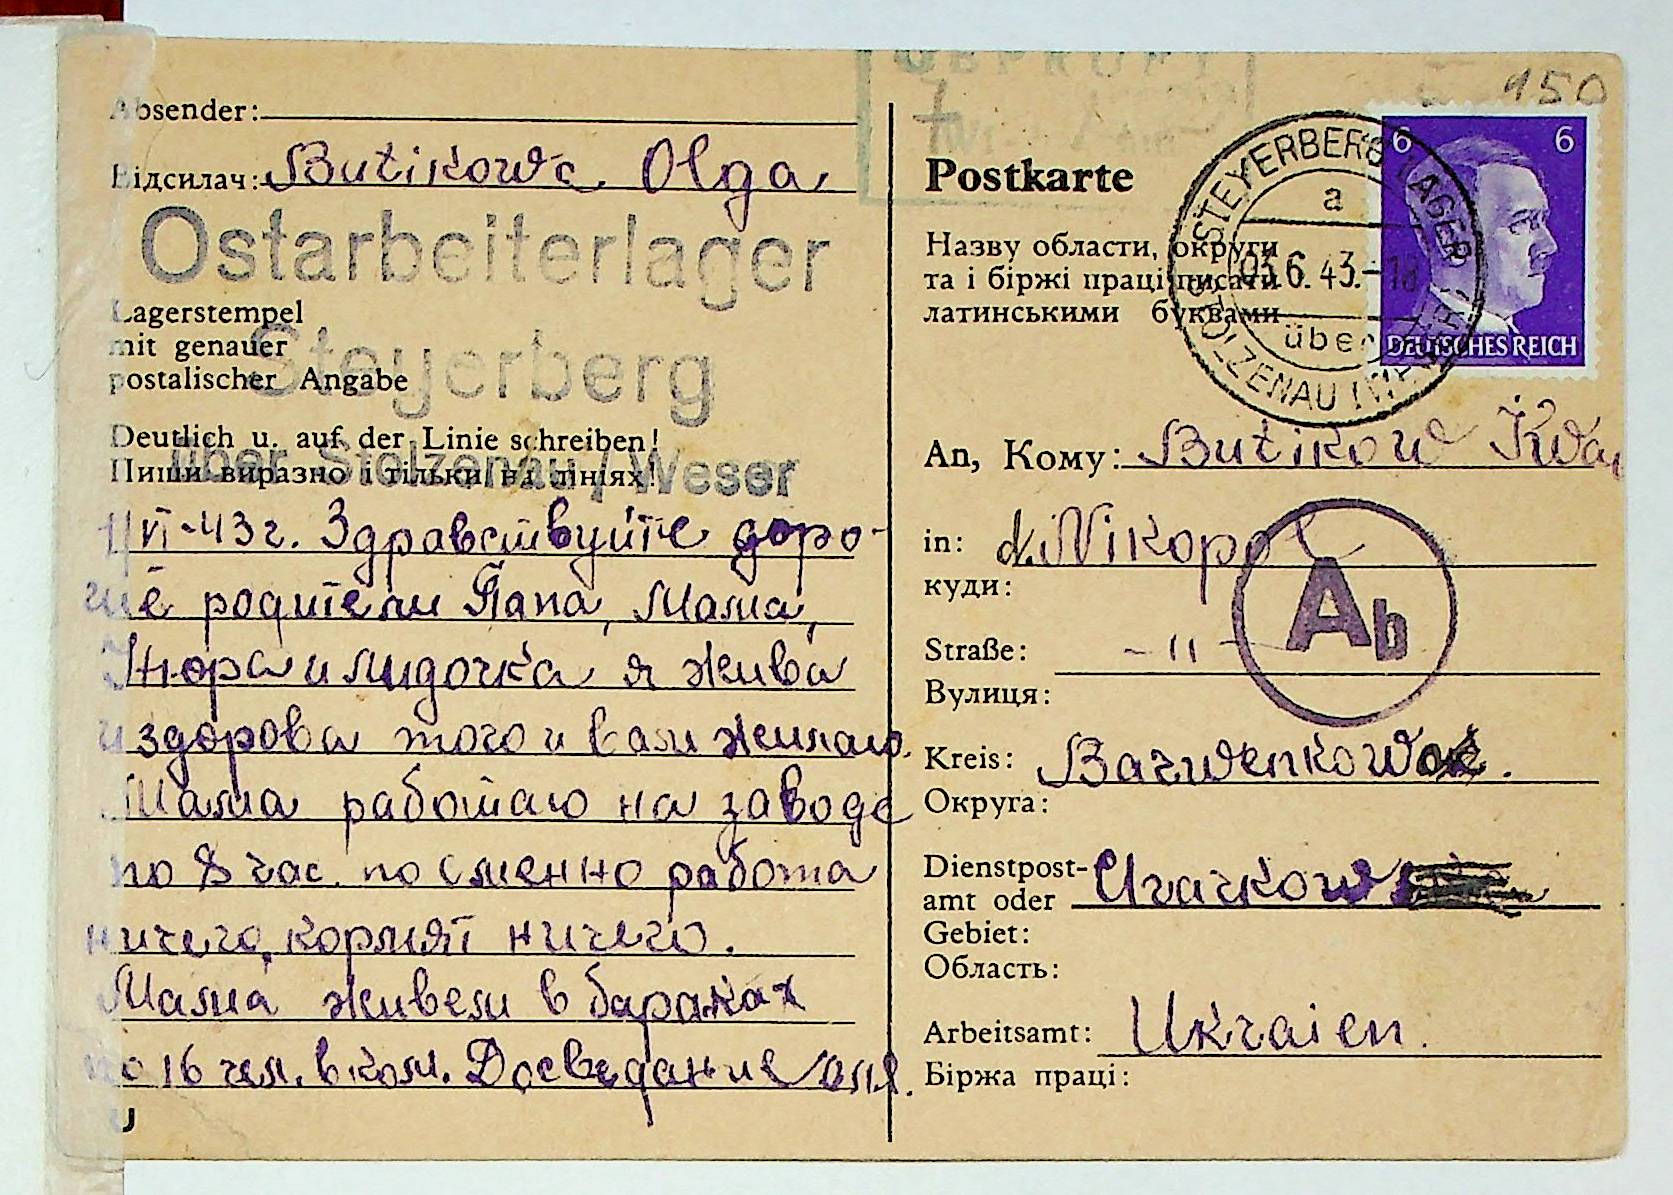 Absender:
Відсилач: Butikowa Olga
Ostarbeiterlager
Lagerstempel
mit genauer
Steyerberg
postalischer Angabe
Deutlich u. auf der Linie schreiben!
Пиши виразно і тільки на лініях!
über Stolzenau / Weser
1/VI-43г. Здравствуйте доро-
гие родители Папа, Мама,
Нюра и лидочка я жива
и здорова того и вам желаю.
Мама работаю на заводе
по 8 час. посменно работа
ничего, кормят ничего.
Мама живем в бараках
по 16 чел. в ком. Досведание
U
GEPRÜFT
950
Postkarte
Назву области, округи
та і біржі праці писати
латинськими буквами
STEYERBERG LAGER
a
03.6.43.-18
über
STOLZENAU (WESER)
6 6
DEUTSCHES REICH
An, Кому: Butikow
in: d. Nikopol
куди:
Ab
Straße: - 11 -
Вулиця:
Kreis: Barwenkow
Округа:
Dienstpost-
amt oder Charkow
Gebiet:
Область:
Arbeitsamt: Ukraien.
Біржа праці: